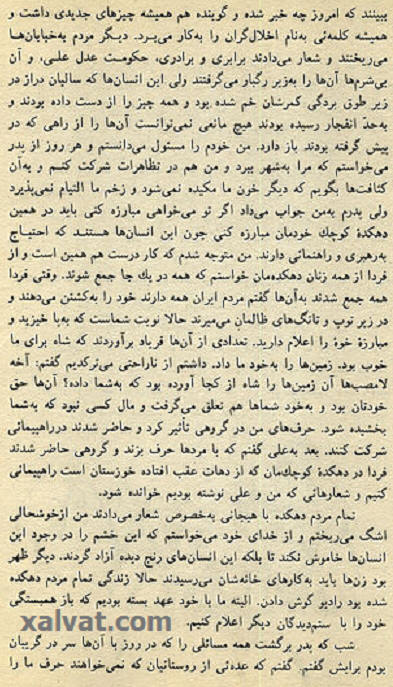 ببینند که امروز چه خبر شده و گوینده هم همیشه چیزهای جدیدی داشت و
همیشه کلمه‌ئی به‌نام اخلالگران را به‌کار می‌برد. دیگر مردم به‌خیابان‌ها
می‌ریختند و شعار می‌دادند برابری و برادری، حکومت عدل علی، و آن
بی‌شرم‌ها آن‌ها را به‌زیر رگبار می‌گرفتند ولی این انسان‌ها که سالیان دراز در
زیر طوق بردگی کمرشان خم شده بود و همه چیز را از دست داده بودند و
به‌حدّ انفجار رسیده بودند هیچ مانعی نمی‌توانست آن‌ها را از راهی که در
پیش گرفته بودند باز دارد. من خودم را مسئول می‌دانستم و هر روز از پدر
می‌خواستم که مرا به‌شهر ببرد و من هم در تظاهرات شرکت کنم و به‌آن
کثافت‌ها بگویم که دیگر خون ما مکیده نمی‌شود و زخم ما التیام نمی‌پذیرد
ولی پدرم به‌من جواب می‌داد اگر تو می‌خواهی مبارزه کنی باید در همین
دهکدهٔ کوچك خودمان مبارزه کنی چون این انسان‌ها هستند که احتیاج
به‌رهبری و راهنمائی دارند. من متوجه شدم که کار درست هم همین است و از
فردا از همه زنان دهکده‌مان خواستم که همه در یك جا جمع شوند. وقتی فردا
همه جمع شدند به‌آن‌ها گفتم مردم ایران همه دارند خود را به‌کشتن می‌دهند و
در زیر توپ و تانگ‌های ظالمان می‌میرند حالا نوبت شماست که به‌پا خیزید و
مبارزهٔ خود را اعلام دارید. تعدادی از آن‌ها فریاد برآوردند که شاه برای ما
خوب بود. زمین‌ها را به‌خود ما داد. داشتم از ناراحتی می‌ترکیدم گفتم: آخه
لامصب‌ها آن زمین‌ها را شاه از کجا آورده بود که به‌شما داده؟ آن‌ها حق
خودتان بود و به‌خود شماها هم تعلق می‌گرفت و مال کسی نبود که به‌شما
بخشیده شود. حرف‌های من در گروهی تأثیر کرد و حاضر شدند درراهپیمائی
شرکت کنند. بعد به‌علی گفتم که با مردها حرف بزند و گروهی حاضر شدند
فردا در دهکدهٔ کوچك‌مان که از دهات عقب افتاده خوزستان است راهپیمائی
کنیم و شعارهائی که من و علی نوشته بودیم خوانده شود.
تمام مردم دهکده با هیجانی به‌خصوص شعار می‌دادند من ازخوشحالی
اشگ می‌ریختم و از خدای خود می‌خواستم که این خشم را در وجود این
انسان‌ها خاموش نکند تا بلکه این انسان‌های رنج دیده آزاد گردند. دیگر ظهر
بود زن‌ها باید به‌کارهای خانه‌شان می‌رسیدند حالا زندگی تمام مردم دهکده
شده بود رادیو گوش دادن. البته ما با خود عهد بسته بودیم که باز همبستگی
خود را با ستمدیدگان دیگر اعلام کنیم.
شب که پدر برگشت همه مسائلی را که در روز با آن‌ها سر در گریبان
بودم برایش گفتم. گفتم که عده‌ئی از روستائیان که نمی‌خواهند حرف ما را
xalvat.com